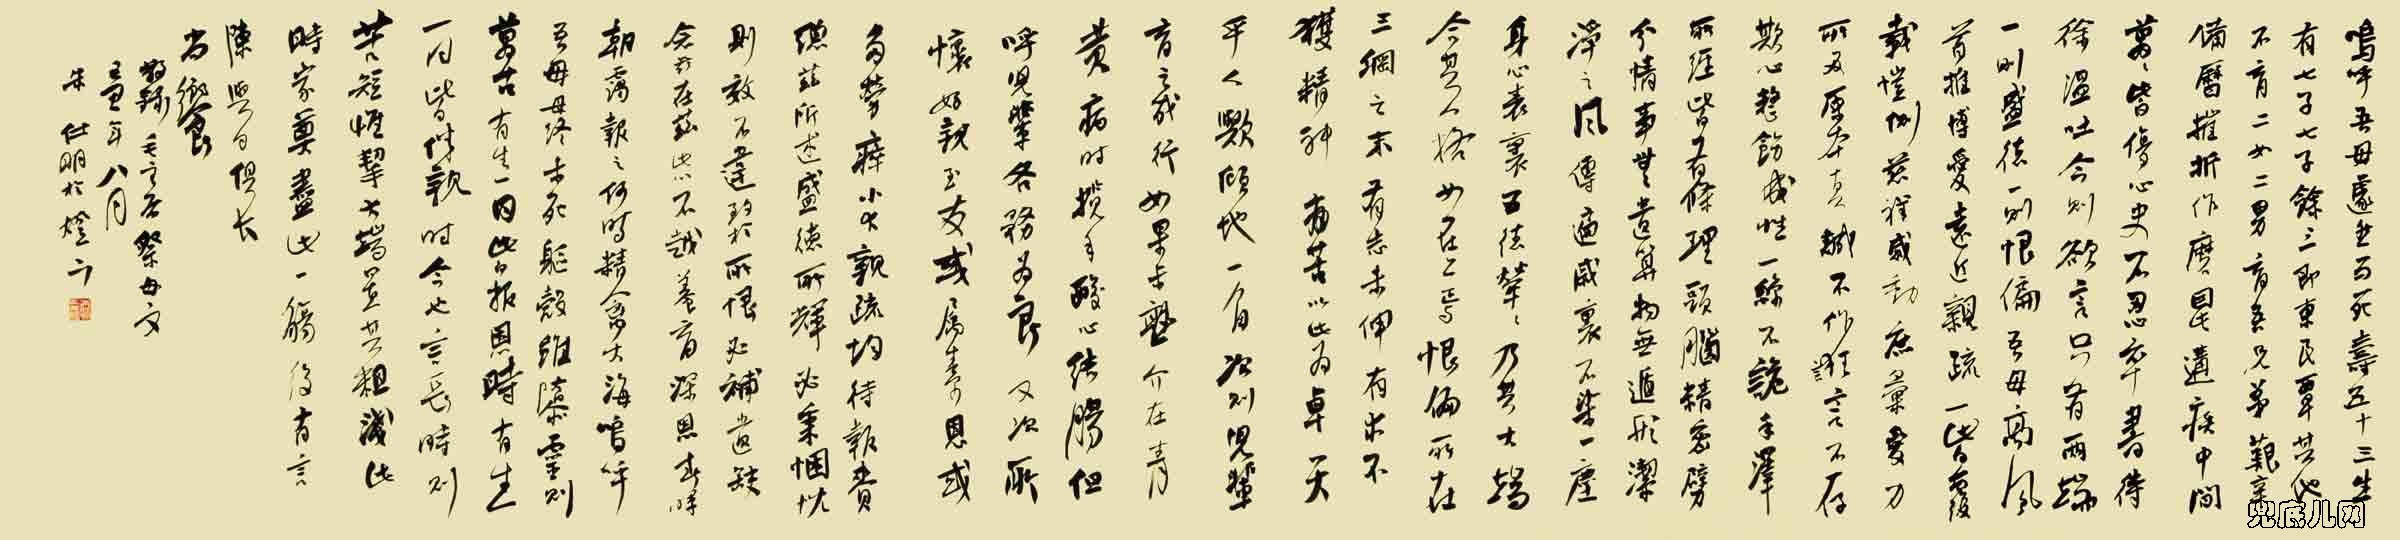 嗚呼吾母遽然而死壽五十三生
有七子七子餘三即東民覃其他
不育二女二男育吾兄弟艱辛
備歷摧折作磨因此遘疾中間
萬萬皆傷心史不忍卒書待
徐溫吐今則欲言只有兩端
一則盛德一則恨偏吾母高風
首推博愛遠近親疏一皆覆
載愷惻慈祥感動庶彙愛力
所及原本真誠不作誑言不存
欺心整飭成性一絲不詭手澤
所經皆有條理頭腦精密劈
分情事無遺算物無遁形潔
淨之風傳遍戚裏不染一塵
身心表裏五德犖犖乃其大端
合其人格如在上焉恨偏所在
三綱之末有志未伸有求不
獲精神痛苦以此為卓天
乎人歟傾地一角次則兒輩
育之成行如果未熟介在青
黃病時攬手酸心結腸但
呼兒輩各務為良又次所
懷好親至友或屬素恩或
多勞瘁小大親疏均待報賚
總茲所述盛德所輝必秉悃忱
則效不違致於所恨必補遺缺
念茲在茲此心不越養育深恩春暉
朝靄報之何時精禽大海嗚呼
吾母母終未死軀殼雖隳靈則
萬古有生一日皆報恩時有生
一日皆伴親時今也言長時則
苦短惟挈大端置其粗淺此
時家奠盡此一觴後有言
陳與日俱長
尚饗
敬錄毛澤東祭母文
年八月
朱仕明於燈下
兜底儿网